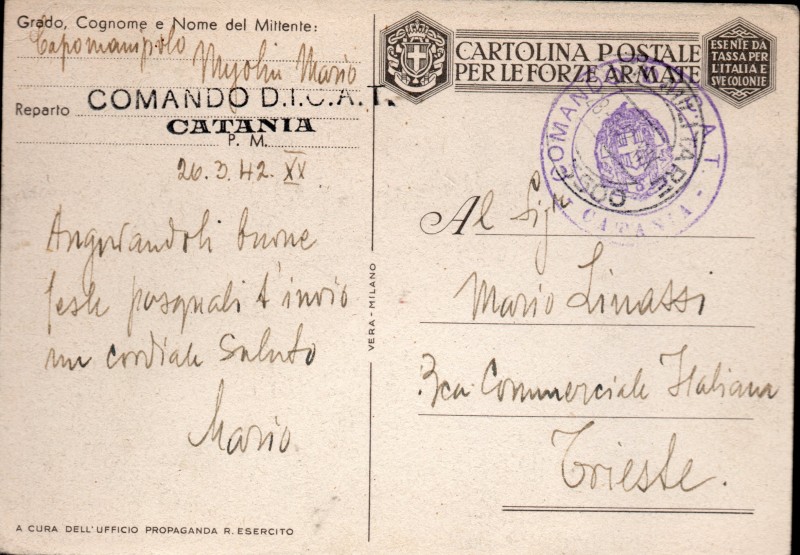 Grado, Cognome e Nome del Mittente:
Mario
Reparto COMANDO D.I.C.A.T.
CATANIA
P. M.
26.3.42.XX
Augurandoti buone
feste pasquali t'invio
un cordiale saluto
Mario
A CURA DELL'UFFICIO PROPAGANDA R. ESERCITO
VERA - MILANO
CARTOLINA POSTALE
PER LE FORZE ARMATE
ESENTE DA
TASSA PER
L'ITALIA E
SVE COLONIE
CATANIA
Al Sig
Mario Linassi
Bca Commerciale Italiana
Trieste.